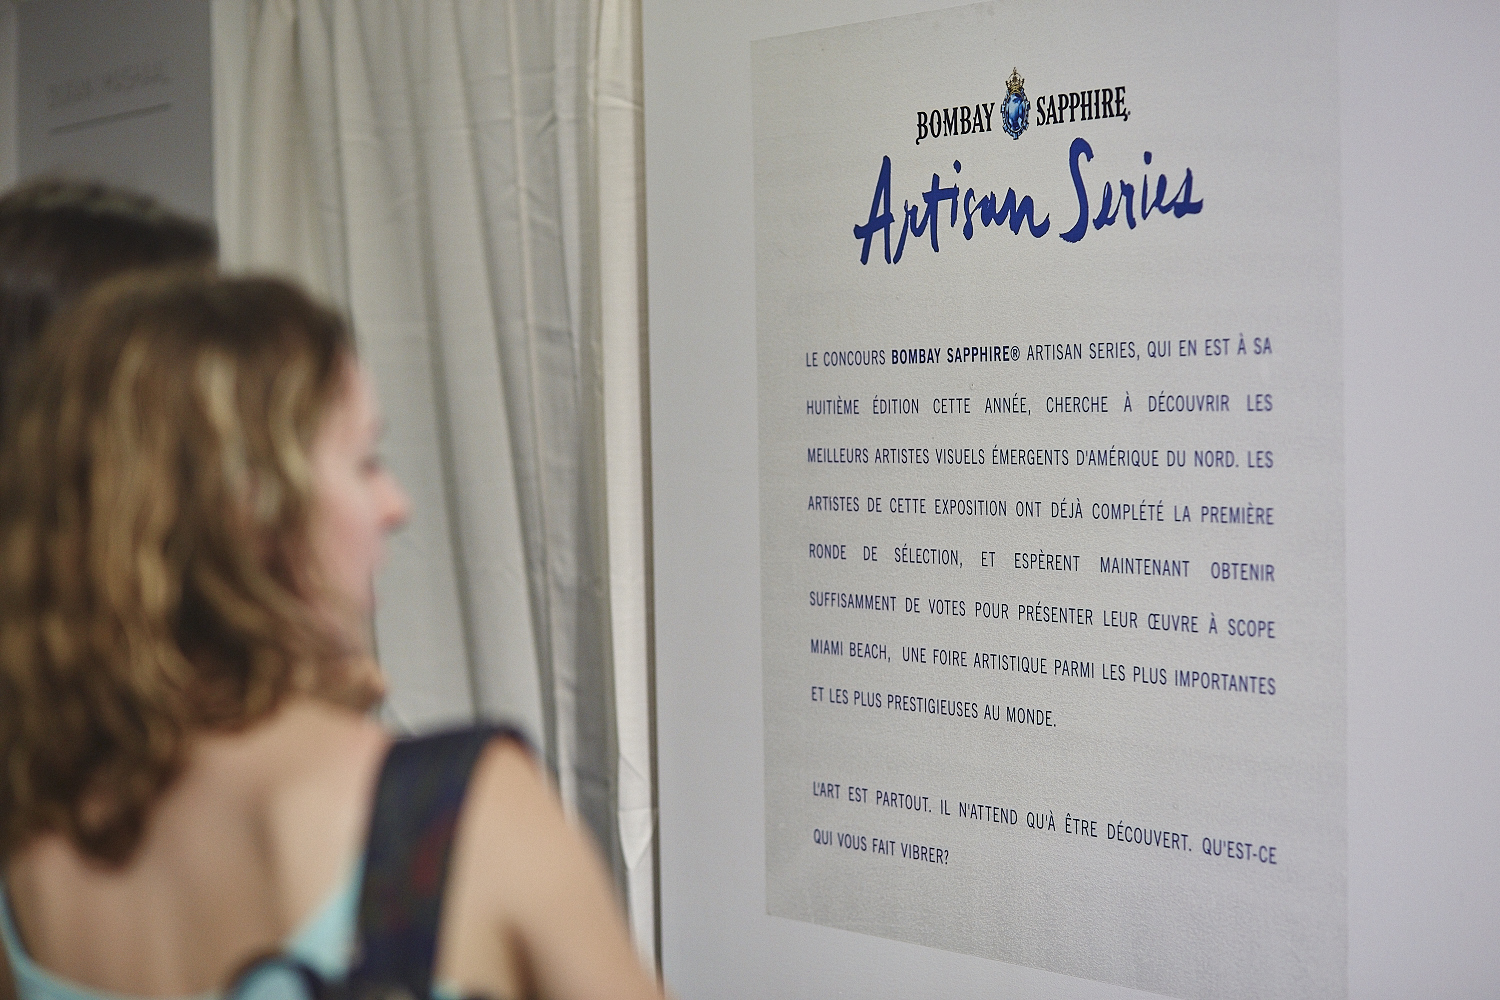 BOMBAY SAPPHIRE
Artisan Series
LE CONCOURS BOMBAY SAPPHIRE® ARTISAN SERIES, QUI EN EST À SA
HUITIÈME ÉDITION CETTE ANNÉE, CHERCHE À DÉCOUVRIR LES
MEILLEURS ARTISTES VISUELS ÉMERGENTS D'AMÉRIQUE DU NORD. LES
ARTISTES DE CETTE EXPOSITION ONT DÉJÀ COMPLÉTÉ LA PREMIÈRE
RONDE DE SÉLECTION, ET ESPÈRENT MAINTENANT OBTENIR
SUFFISAMMENT DE VOTES POUR PRÉSENTER LEUR ŒUVRE À SCOPE
MIAMI BEACH, UNE FOIRE ARTISTIQUE PARMI LES PLUS IMPORTANTES
ET LES PLUS PRESTIGIEUSES AU MONDE.
L'ART EST PARTOUT. IL N'ATTEND QU'À ÊTRE DÉCOUVERT. QU'EST-CE
QUI VOUS FAIT VIBRER?